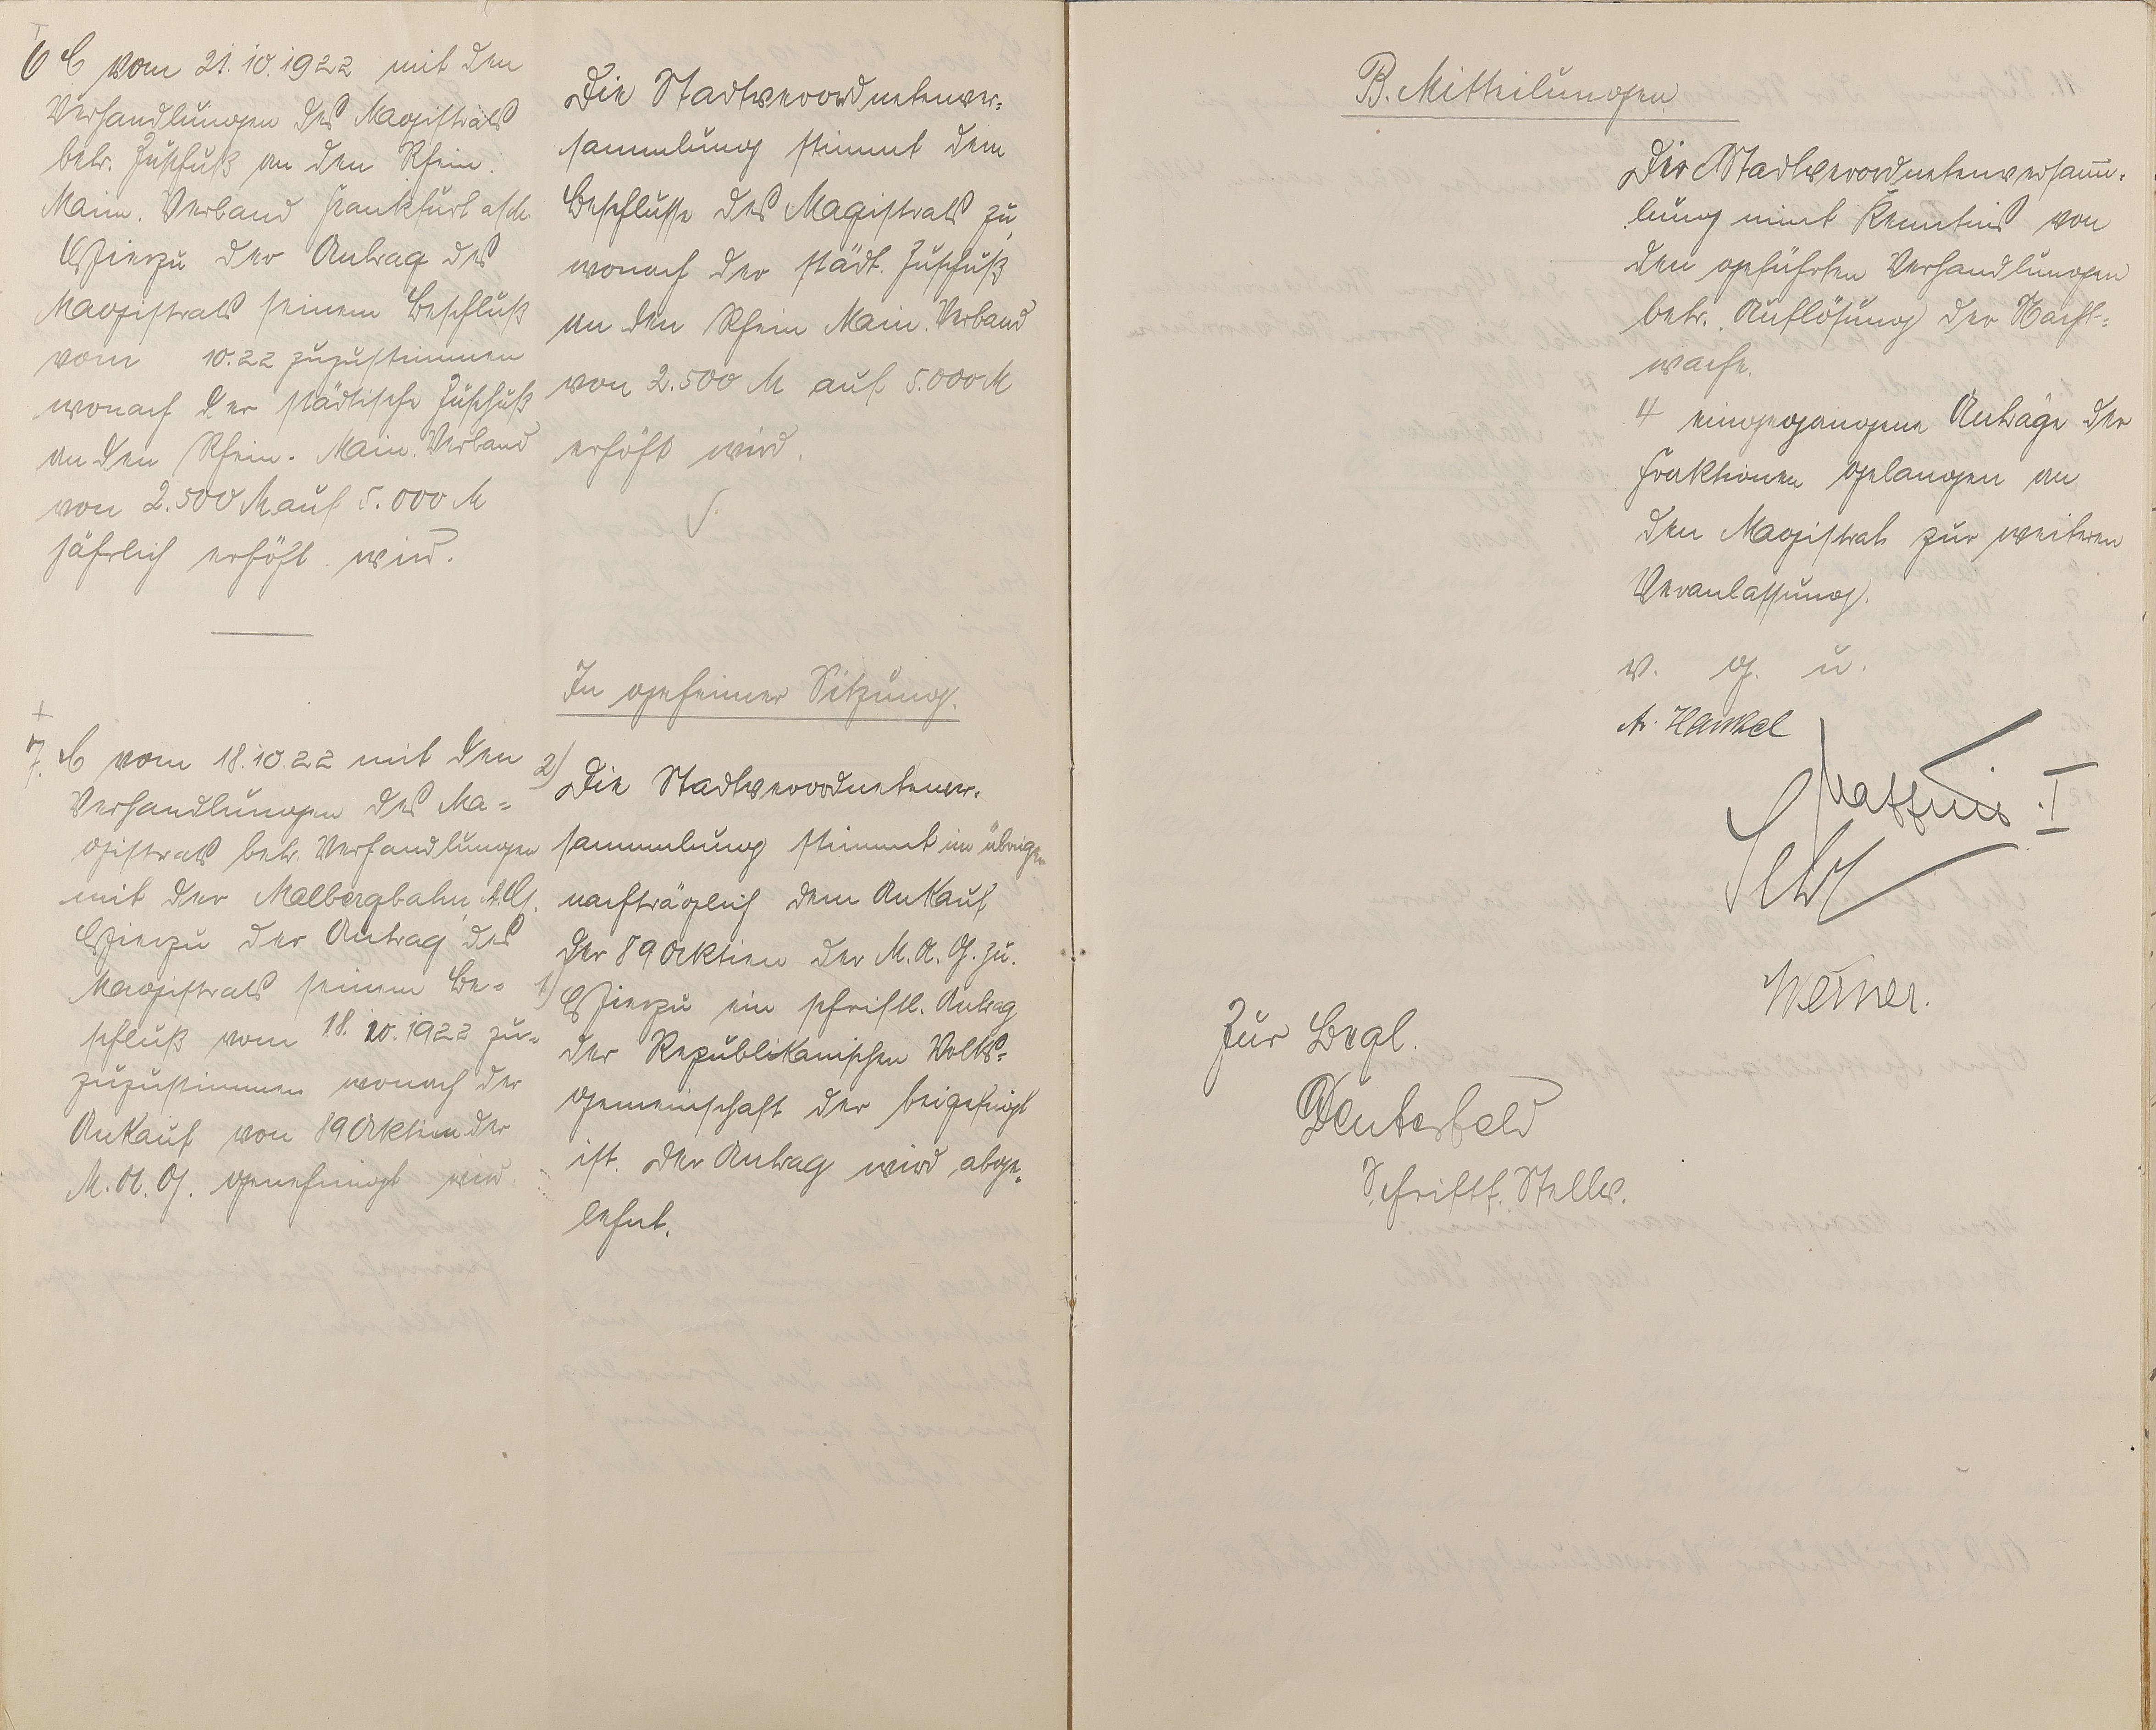 6 E vom 21.10.1922 mit den
Verhandlungen des Magistrats
betr. Zuschuß an den Rhein.
Main. Verband Frankfurt a/M.
Hierzu der Antrag des
Magistrats seinem Beschluß
vom 10.22 zuzustimmen
wonach der städtische Zuschuß
an den Rhein. Main. Verband
von 2.500 M auf 5.000 M
jährlich erhöht wird.
Die Stadtverordnetenver-
sammlung stimmt dem
Beschlusse des Magistrats zu,
wonach der städt. Zuschuß
an den Rhein Main. Verband
von 2.500 M auf 5.000 M
erhöht wird.
In geheimer Sitzung.
7. E vom 18.10.22 mit den
Verhandlungen des Ma=
gistrats betr. Verhandlungen
mit der Malbergbahn A.G.
Hierzu der Antrag des
Magistrats seinem Be=
schluß vom 18.10.1922 zu=
zuzustimmen wonach der
Ankauf von 89 Aktien der
M.A.G. genehmigt wird
2) Die Stadtverordnetenver.
sammlung stimmt im übrigen
nachträglich dem Ankauf
der 89 Aktien der M.A.G. zu.
1) Hierzu ein schriftl. Antrag
der Republikanischen Volks=
gemeinschaft der beigefügt
ist. Der Antrag wird abge=
lehnt.
B. Mitteilungen
Die Stadtverordnetenversamm-
lung nimt Kenntnis von
den geführten Verhandlungen
betr. Auflösung der Nacht=
wache.
4 eingegangene Anträge der
Fraktionen gelangen an
den Magistrat zur weiteren
Veranlassung.
v. g. u.
A. Hankel
I
Werner.
Zur Begl.
Deuterfeld
Schriftf. Stellv.